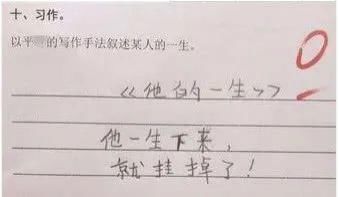 十、习作。
以平 的写作手法叙述某人的一生。
0
《他的一生》
他一生下来，
就挂掉了！